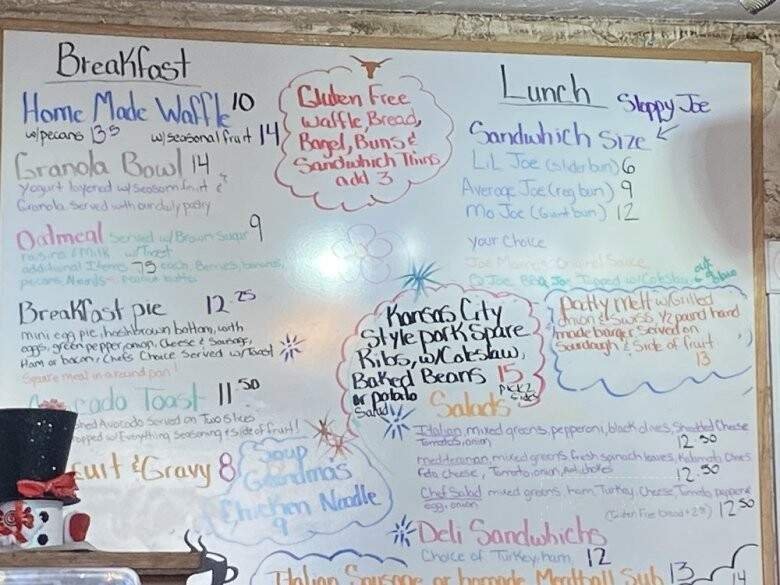 Breakfast
Home Made Waffle 10
w/pecans 13⁵ w/seasonal fruit 14
Granola Bowl 14
Yogurt layered w/season fruit &
Granola Served with our daily pastry
Oatmeal served w/Brown Sugar 9
raisins/Milk w/Toast
additional Items 75 each, Berries, bananas,
pecans, Almonds, peanut butter
Breakfast pie 12.25
mini egg pie, hashbrown bottom, with
eggs, green pepper, onion, Cheese & Sausage,
Ham or bacon, Chefs Choice Served w/Toast
Square meal in a round pan!
cado Toast 11.50
shed Avocado Served on Two slices
opped w/Everything Seasoning & side of fruit!
cuit & Gravy 8
Gluten Free
Waffle, Bread,
Bagel, Buns &
Sandwhich Thins
add 3
Soup
Grandma's
Chicken Noodle
9
Lunch
Sloppy Joe
Sandwhich Size
Lil Joe (Sliderbun) 6
Average Joe (reg bun) 9
Mo Joe (Giant bun) 12
your Choice
Joe Sauce
BBQ Joe Topped w/Coleslaw
Kansas City
Style pork Spare
Ribs, w/Coleslaw,
Baked Beans 15
or potato Pick 2
Salad Sides
patty melt w/Grilled
onion & Swiss, ½ pound hand
made burger Served on
Sourdough & Side of fruit
13
Salads
Italian, mixed greens, pepperoni, black olives, Shredded Cheese
Tomato, onion 12.50
mediteranian, mixed greens fresh spinach leaves, Kalamata Olives
Feta cheese, Tomato, onion, Artichokes 12.50
Chef Salad mixed greens, ham, Turkey, Cheese, Tomato, pepperoni
egg, onion (Gluten Free bread + 2⁵⁰) 12.50
Deli Sandwhichs
Choice of Turkey, ham 12
Italian Sausage or homade Meatball Sub 13
14